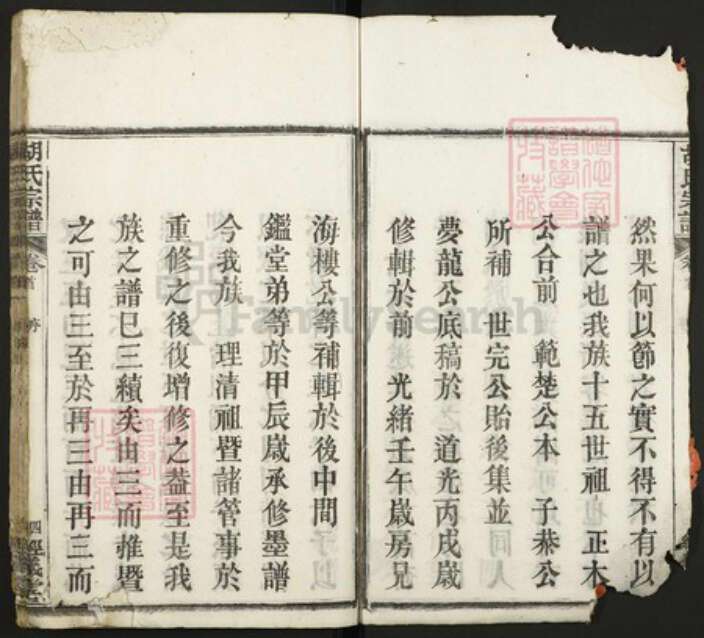 然果何以節之實不得不有以
譜之也我族十五世祖　正本
公合前　範楚公本　子恭公
所補　世完公貽後集並
夢龍公底稿於　道光丙戌歲
修輯於前　光緒壬午歲房兄
海樓公等補輯於後中間
鑑堂弟等於甲辰歲承修墨譜
今我族　理清祖暨諸管事於
重修之後復增修之蓋至是我
族之譜已三續矣由三而推暨
之可由三至於再三由再三而
胡氏宗譜
卷首
序
四
胡氏宗譜
FamilySearch